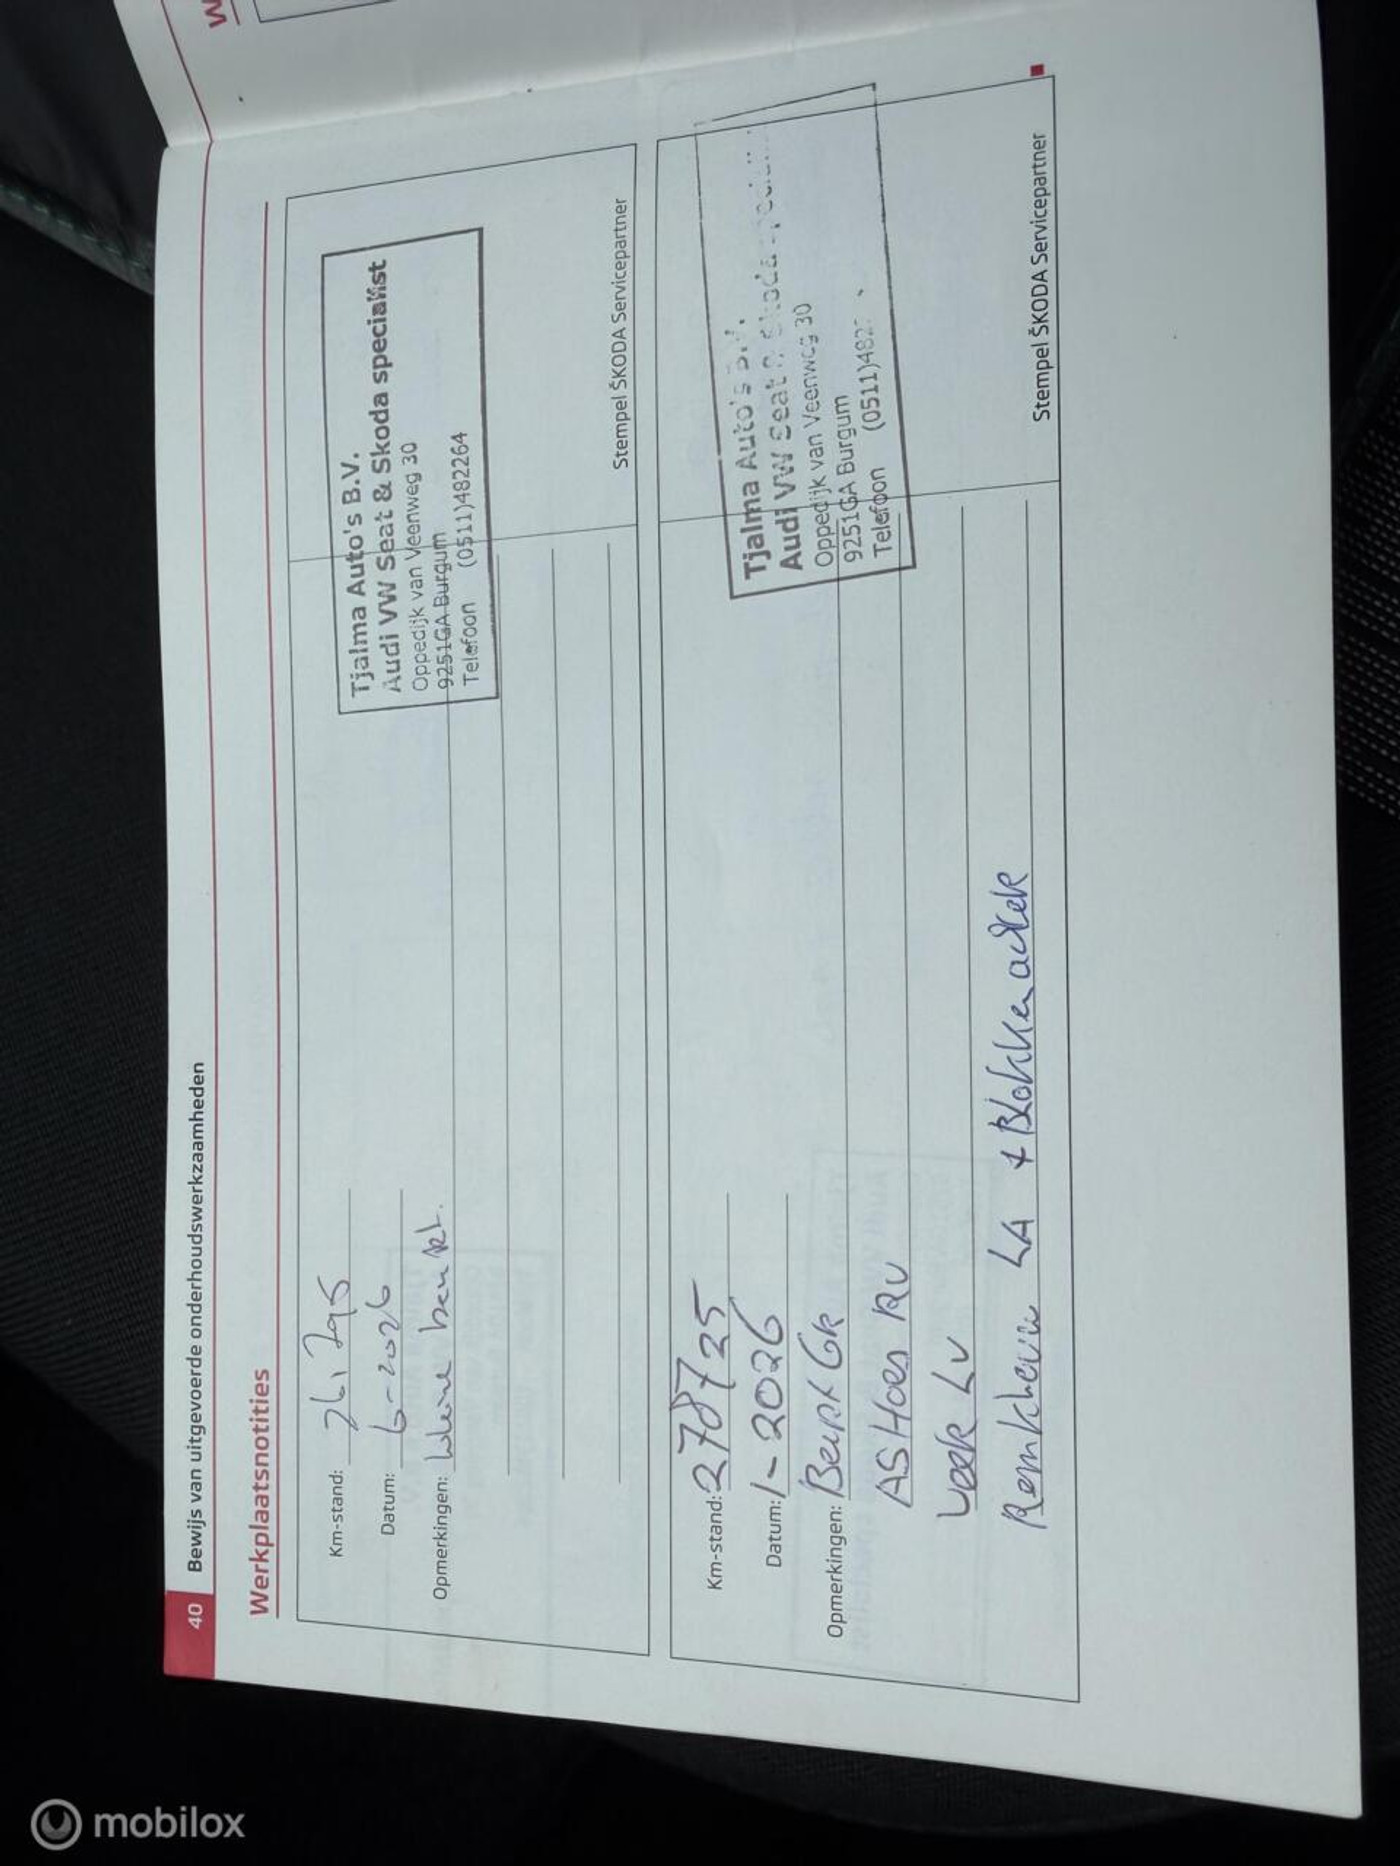 40 Bewijs van uitgevoerde onderhoudswerkzaamheden
W
Werkplaatsnotities
Km-stand:
Datum: 6-2026
Opmerkingen: kleine beurt.
Tjalma Auto's B.V.
Audi VW Seat & Skoda specialist
Oppedijk van Veenweg 30
9251GA Burgum
Telefoon (0511)482264
Stempel ŠKODA Servicepartner
Km-stand: 278725
Datum: 1-2026
Opmerkingen: Beurt GR
AS Hoes RV
Veer LV
Remklauw LA + Blokken achter
Tjalma Auto's B.V.
Audi VW Seat & Skoda
Oppedijk van Veenweg 30
9251GA Burgum
Telefoon (0511)482
Stempel ŠKODA Servicepartner
mobilox